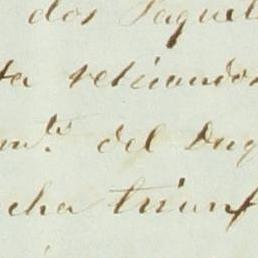 dos Paquet
ta retirandos
m.te del Duq
cha triunf